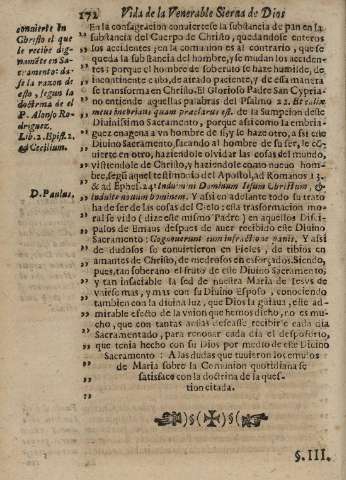 172 Vida de la Venerable Sierna de Dios
conuierte In
Christo el que
le recibe dig-
namẽte en Sa-
cramento: da-
se la razon de
esto, segun la
doctrina de el
P. Alonso Ro-
driguez.
Lib. 2. Epist. 2.
ad Cecilium.
D. Paulus.
En la consagracion conuiertese la substancia de pan en la
substancia del Cuerpo de Christo, quedandole enteros
sus accidentes; en la comunion es al contrario, que se
queda la substancia del hombre, y se mudan los acciden-
tes: porque el hombre de soberuio se haze humilde, de
incontinente casto, de airado paciente, y de essa manera
se transforma en Christo. El Glorioso Padre San Cypria-
no entiende aquellas palabras del Psalmo 22. Et calix
meus inebrians quam præclarus est. de la Sumpcion deste
Diuinissimo Sacramento, porque assi como la embria-
guez enagena a vn hombre de si, y se haze otro, assi este
Diuino Sacramento, sacando al hombre de su ser, le cõ-
uierte en otro, haziendole oluidar las cosas del mundo,
vistiendole de Christo, y haziendole como nuevo hom-
bre, segũ aquel testimonio del Apostol, ad Romanos 13.
& ad Ephes. 24. Induimini Dominum Iesum Christum, &
induite nouum hominem. Y assi en adelante todo su trato
ha de ser de las cosas del Cielo: esta trasformacion mo-
ral se vido (dize este mismo Padre) en aquellos Disci-
pulos de Emaus despues de auer recibido este Diuino
Sacramento: Cognouerunt eum in fractione panis. Y assi
de dudosos se conuirtieron en Fieles, de tibios en
amantes de Christo, de medrosos en esforçados. Siendo,
pues, tan soberano el fruto de este Diuino Sacramento,
y tan insaciable la sed de nuestra Maria de Iesvs de
vnirse mas, y mas con su Diuino Esposo, conociendo
tambien con la diuina luz, que Dios la guiaua, este ad-
mirable efecto de la vnion que hemos dicho, no es mu-
cho, que con tantas ansias desseasse recibir e cada dia
Sacramentado, para renouar cada dia el desposorio,
que tenia hecho con su Dios por medio de este Diuino
Sacramento: A las dudas que tuuieron los emulos
de Maria sobre la Comunion quotidiana se
satisface con la doctrina de la ques-
tion citada.
§. III.